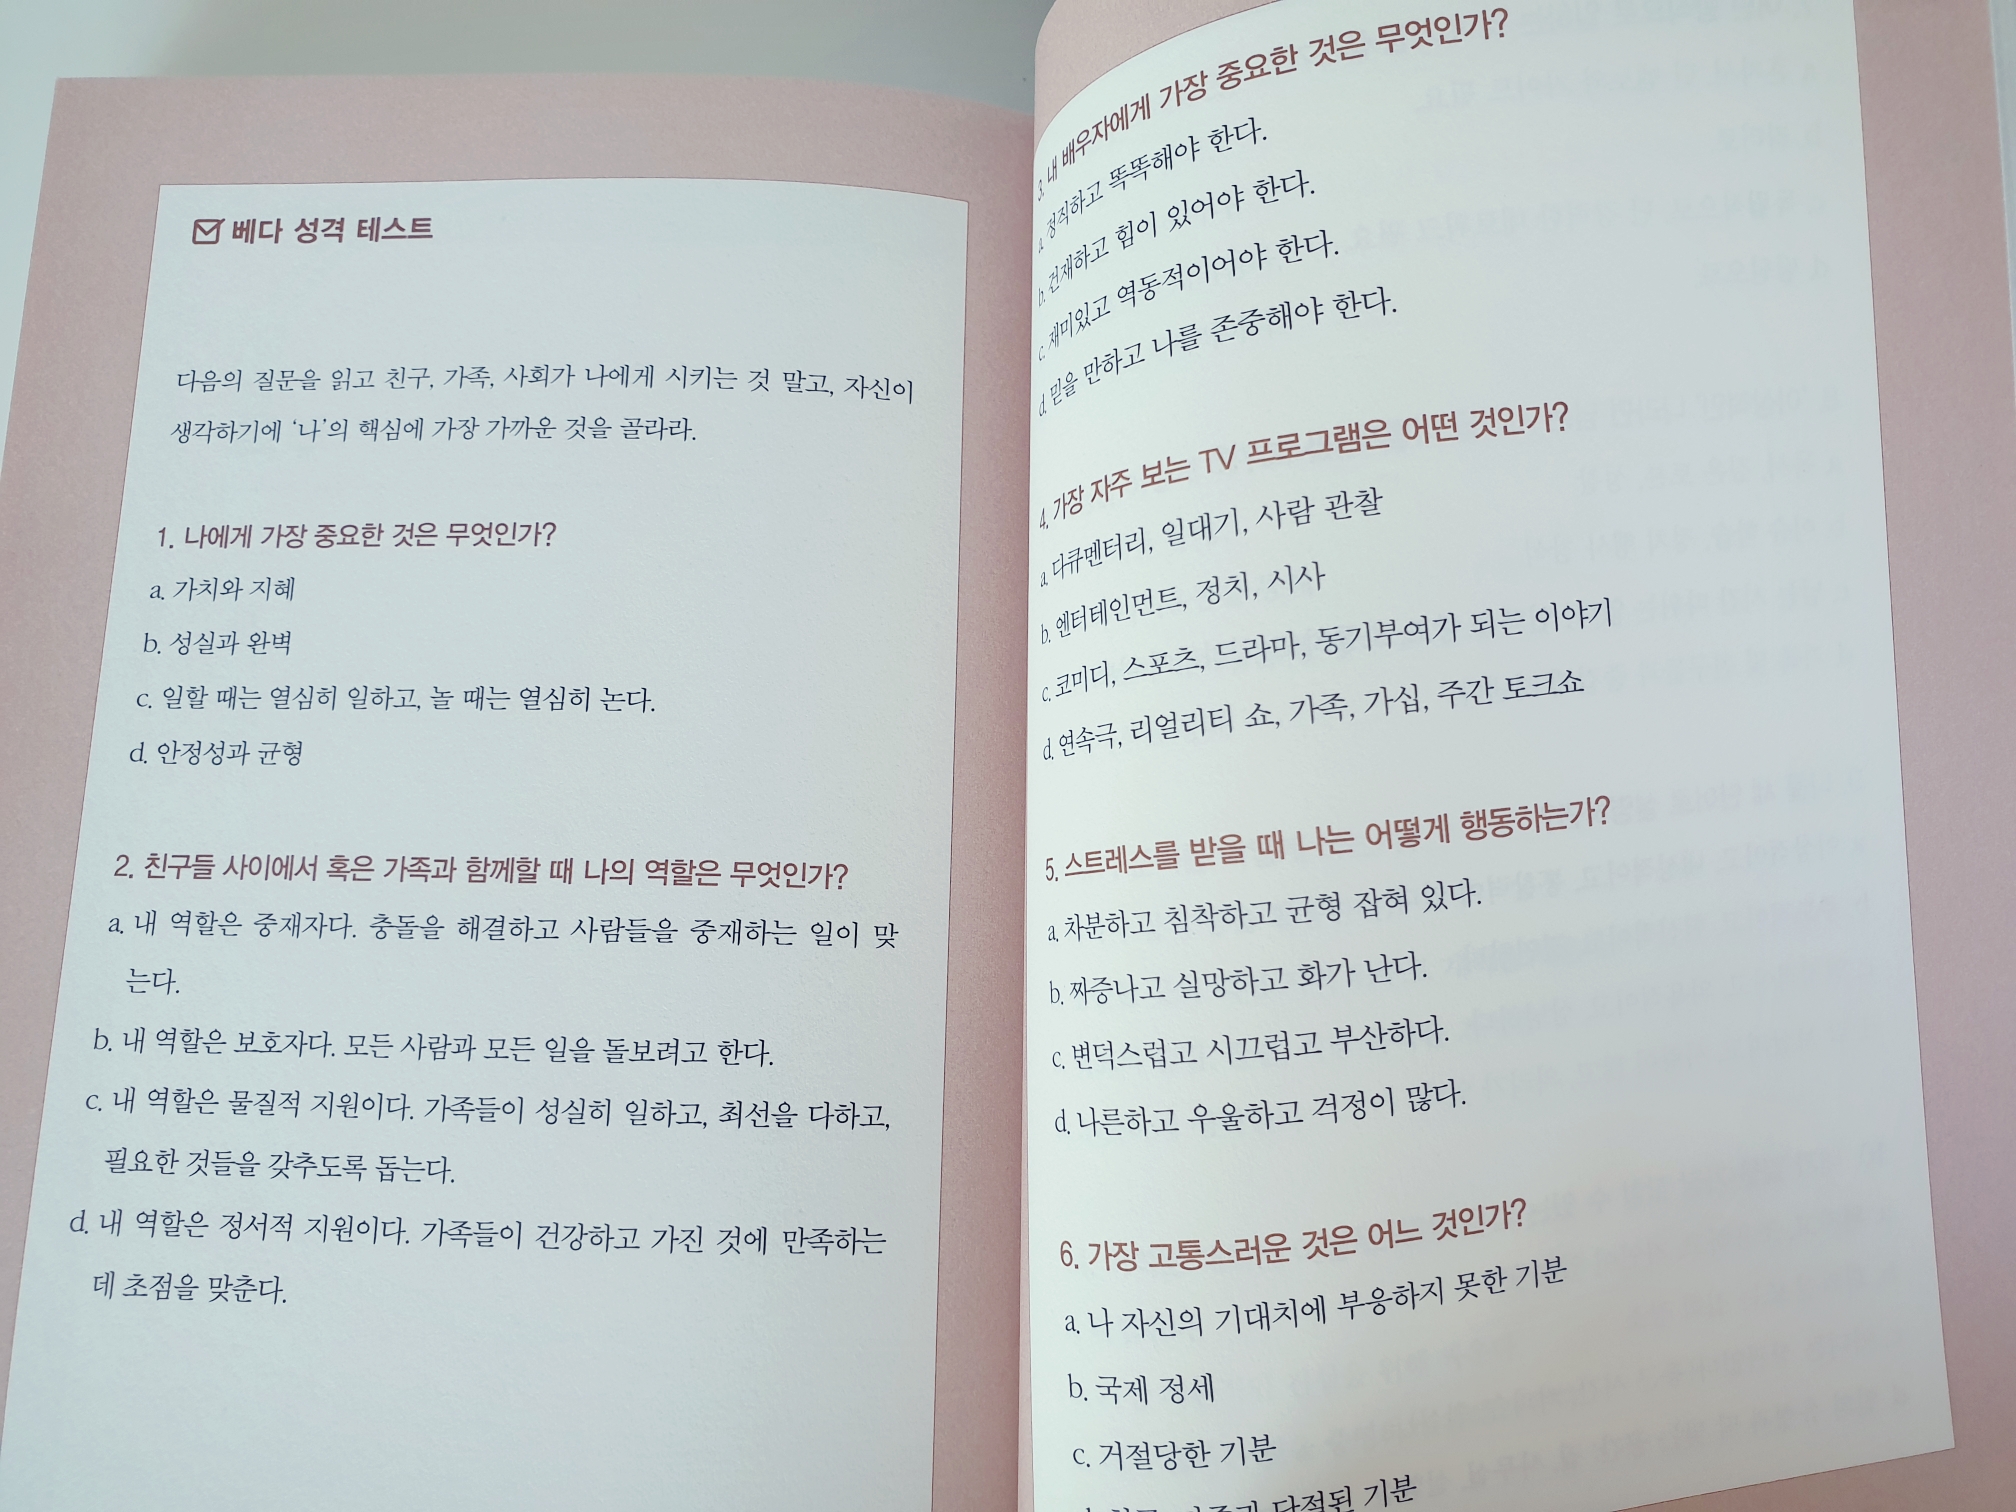 베다 성격 테스트
다음의 질문을 읽고 친구, 가족, 사회가 나에게 시키는 것 말고, 자신이
생각하기에 ‘나’의 핵심에 가장 가까운 것을 골라라.
1. 나에게 가장 중요한 것은 무엇인가?
a. 가치와 지혜
b. 성실과 완벽
c. 일할 때는 열심히 일하고, 놀 때는 열심히 논다.
d. 안정성과 균형
2. 친구들 사이에서 혹은 가족과 함께할 때 나의 역할은 무엇인가?
a. 내 역할은 중재자다. 충돌을 해결하고 사람들을 중재하는 일이 맞
는다.
b. 내 역할은 보호자다. 모든 사람과 모든 일을 돌보려고 한다.
c. 내 역할은 물질적 지원이다. 가족들이 성실히 일하고, 최선을 다하고,
필요한 것들을 갖추도록 돕는다.
d. 내 역할은 정서적 지원이다. 가족들이 건강하고 가진 것에 만족하는
데 초점을 맞춘다.
3. 내 배우자에게 가장 중요한 것은 무엇인가?
a. 정직하고 똑똑해야 한다.
b. 건재하고 힘이 있어야 한다.
c. 재미있고 역동적이어야 한다.
d. 믿을 만하고 나를 존중해야 한다.
4. 가장 자주 보는 TV 프로그램은 어떤 것인가?
a. 다큐멘터리, 일대기, 사람 관찰
b. 엔터테인먼트, 정치, 시사
c. 코미디, 스포츠, 드라마, 동기부여가 되는 이야기
d. 연속극, 리얼리티 쇼, 가족, 가십, 주간 토크쇼
5. 스트레스를 받을 때 나는 어떻게 행동하는가?
a. 차분하고 침착하고 균형 잡혀 있다.
b. 짜증나고 실망하고 화가 난다.
c. 변덕스럽고 시끄럽고 부산하다.
d. 나른하고 우울하고 걱정이 많다.
6. 가장 고통스러운 것은 어느 것인가?
a. 나 자신의 기대치에 부응하지 못한 기분
b. 국제 정세
c. 거절당한 기분
단절된 기분